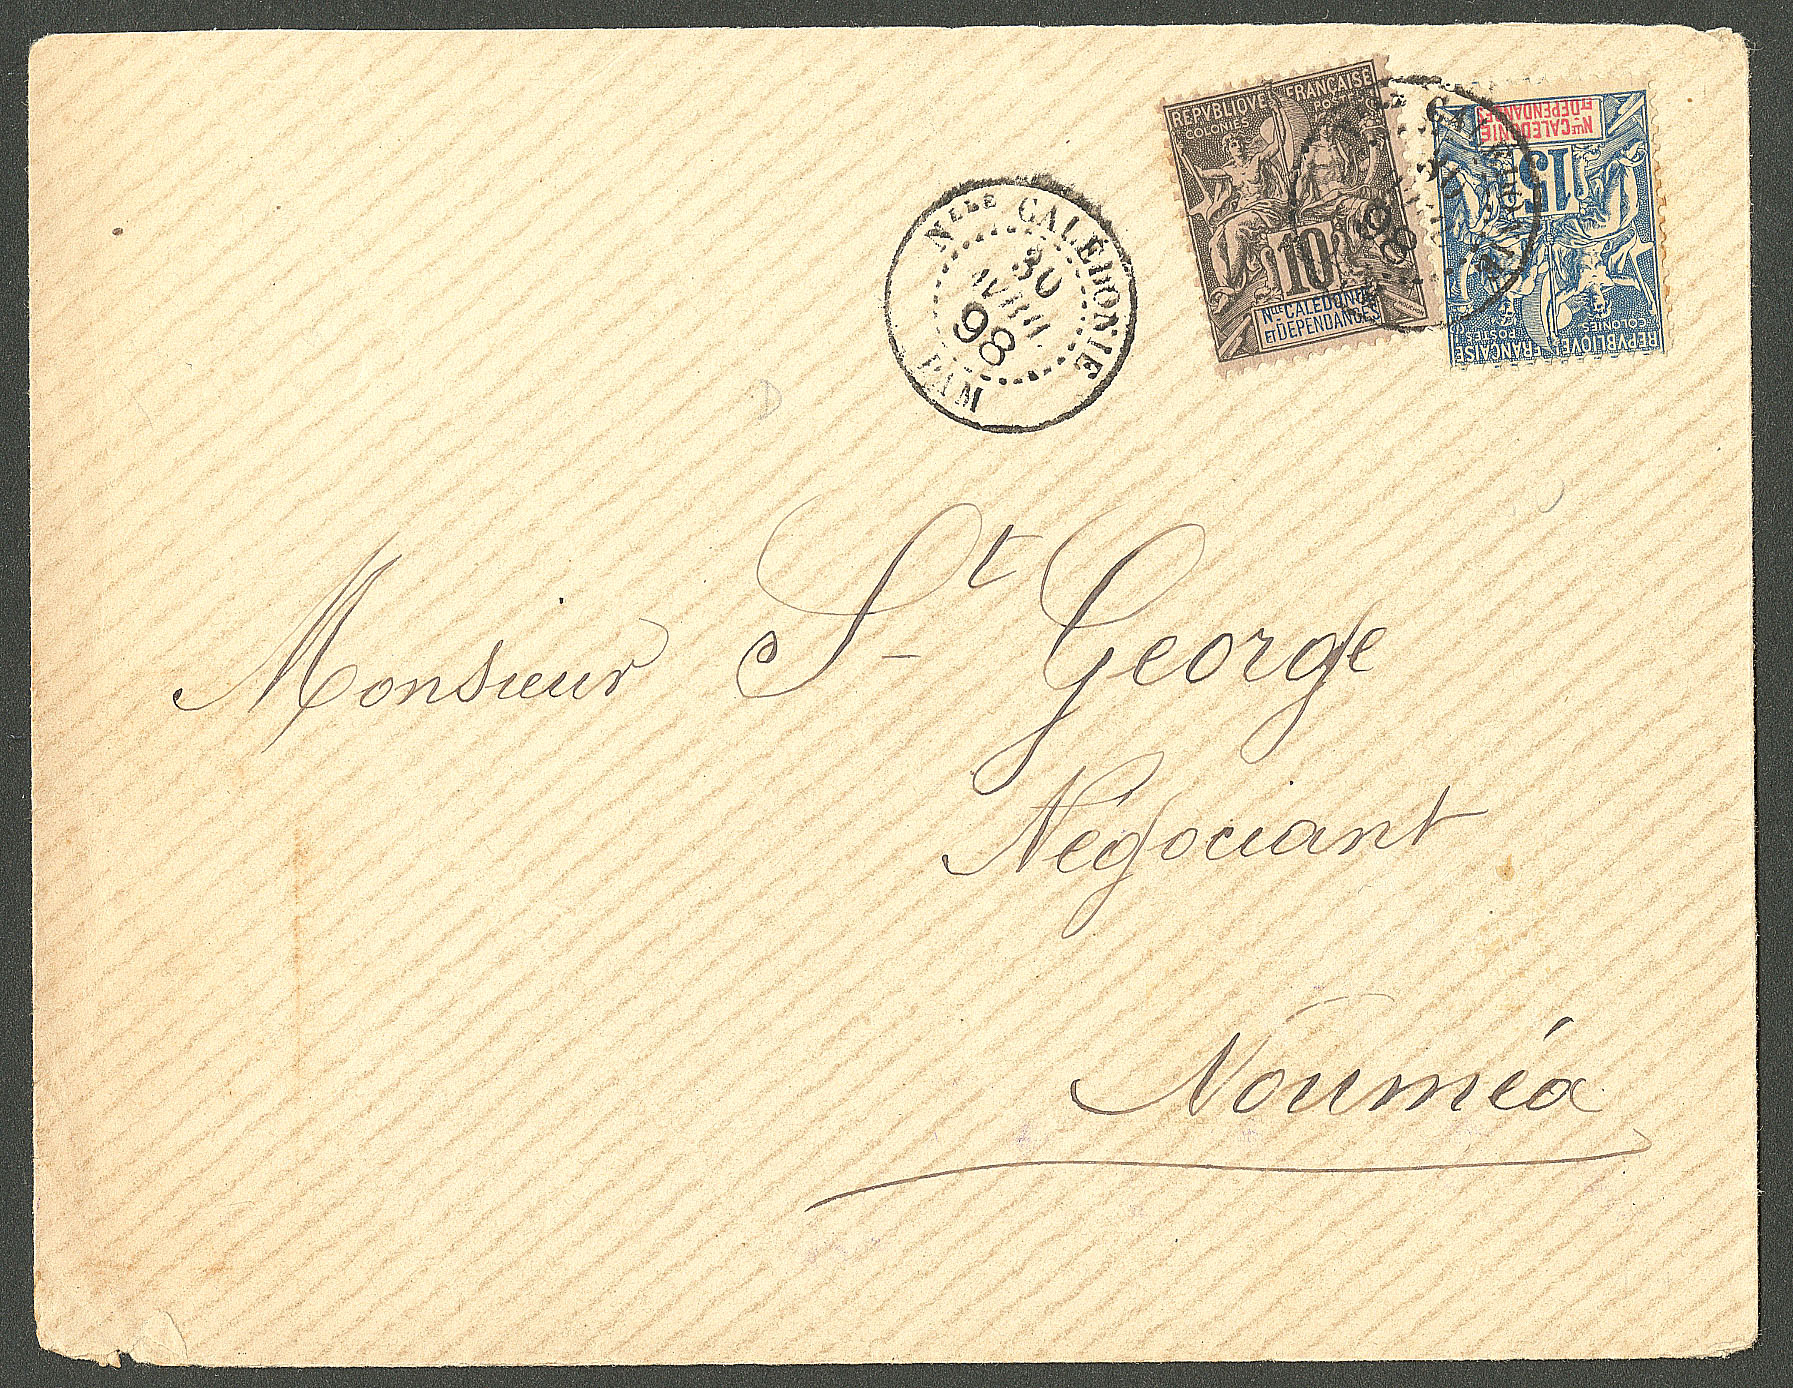 REPVBLIQVE FRANÇAISE
COLONIES POSTES
10
Nlle CALEDONIE
ET DEPENDANCES
Nlle CALEDONIE
ET DEPENDANCES
15
COLONIES POSTES
REPVBLIQVE FRANÇAISE
98
Nlle CALÉDONIE
30
AVRIL
98
Monsieur St George
Négociant
Nouméa